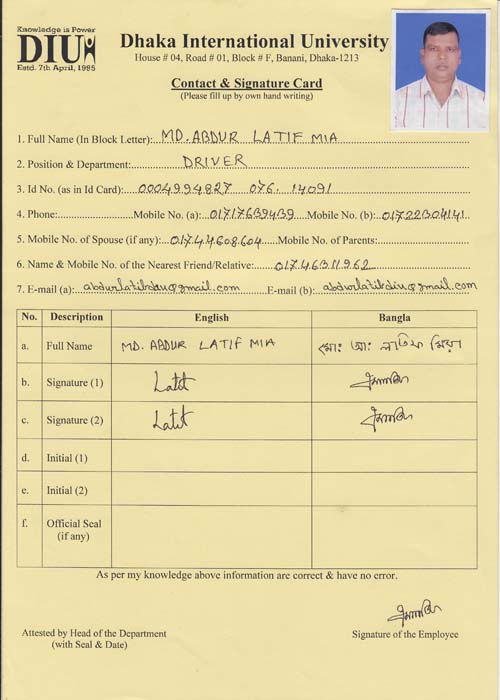 Knowledge is Power
DIU
Estd. 7th April, 1995
Dhaka International University
House # 04, Road # 01, Block # F, Banani, Dhaka-1213
Contact & Signature Card
(Please fill up by own hand writing)
1. Full Name (In Block Letter): MD. ABDUR LATIF MIA
2. Position & Department: DRIVER
3. Id No. (as in Id Card): 0004994827 076. 14091
4. Phone: Mobile No. (a): 01717639439 Mobile No. (b): 01722304141
5. Mobile No. of Spouse (if any): 01744608604 Mobile No. of Parents:
6. Name & Mobile No. of the Nearest Friend/Relative: 01746311962
7. E-mail (a): abdurlatifdiu@gmail.com E-mail (b): abdurlatifdiu@gmail.com
No. Description English Bangla
a. Full Name MD. ABDUR LATIF MIA মোঃ আঃ লতিফ মিয়া
b. Signature (1) Latif
c. Signature (2) Latif
d. Initial (1)
e. Initial (2)
f. Official Seal
(if any)
As per my knowledge above information are correct & have no error.
Attested by Head of the Department Signature of the Employee
(with Seal & Date)